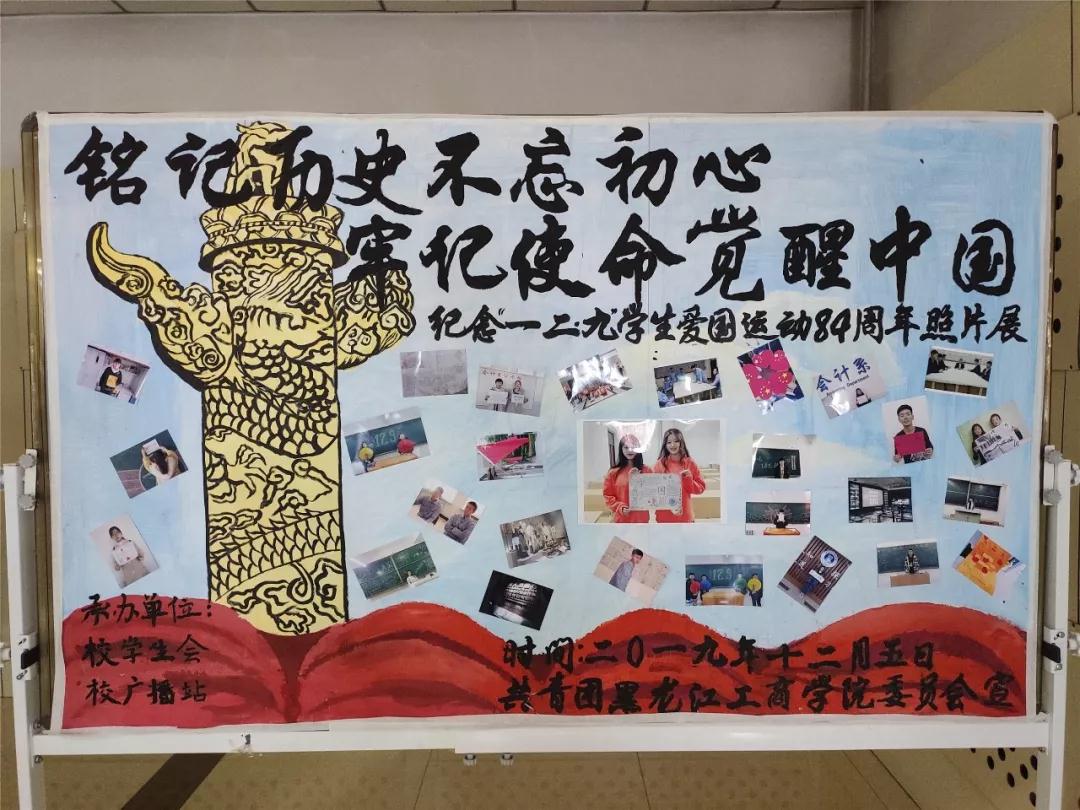 铭记历史不忘初心
牢纪使命觉醒中国
纪念"一二·九"学生爱国运动84周年照片展
会计系
12.9
12.9
承办单位:
校学生会
校广播站
时间:二0一九年十二月五日
共青团黑龙江工商学院委员会宣